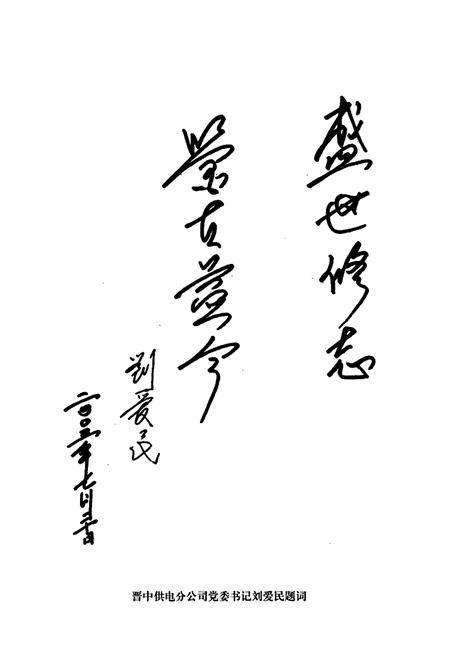 盛世修志
鉴古益今
劉爱民
二〇〇年七月十日
晋中供电分公司党委书记刘爱民题词